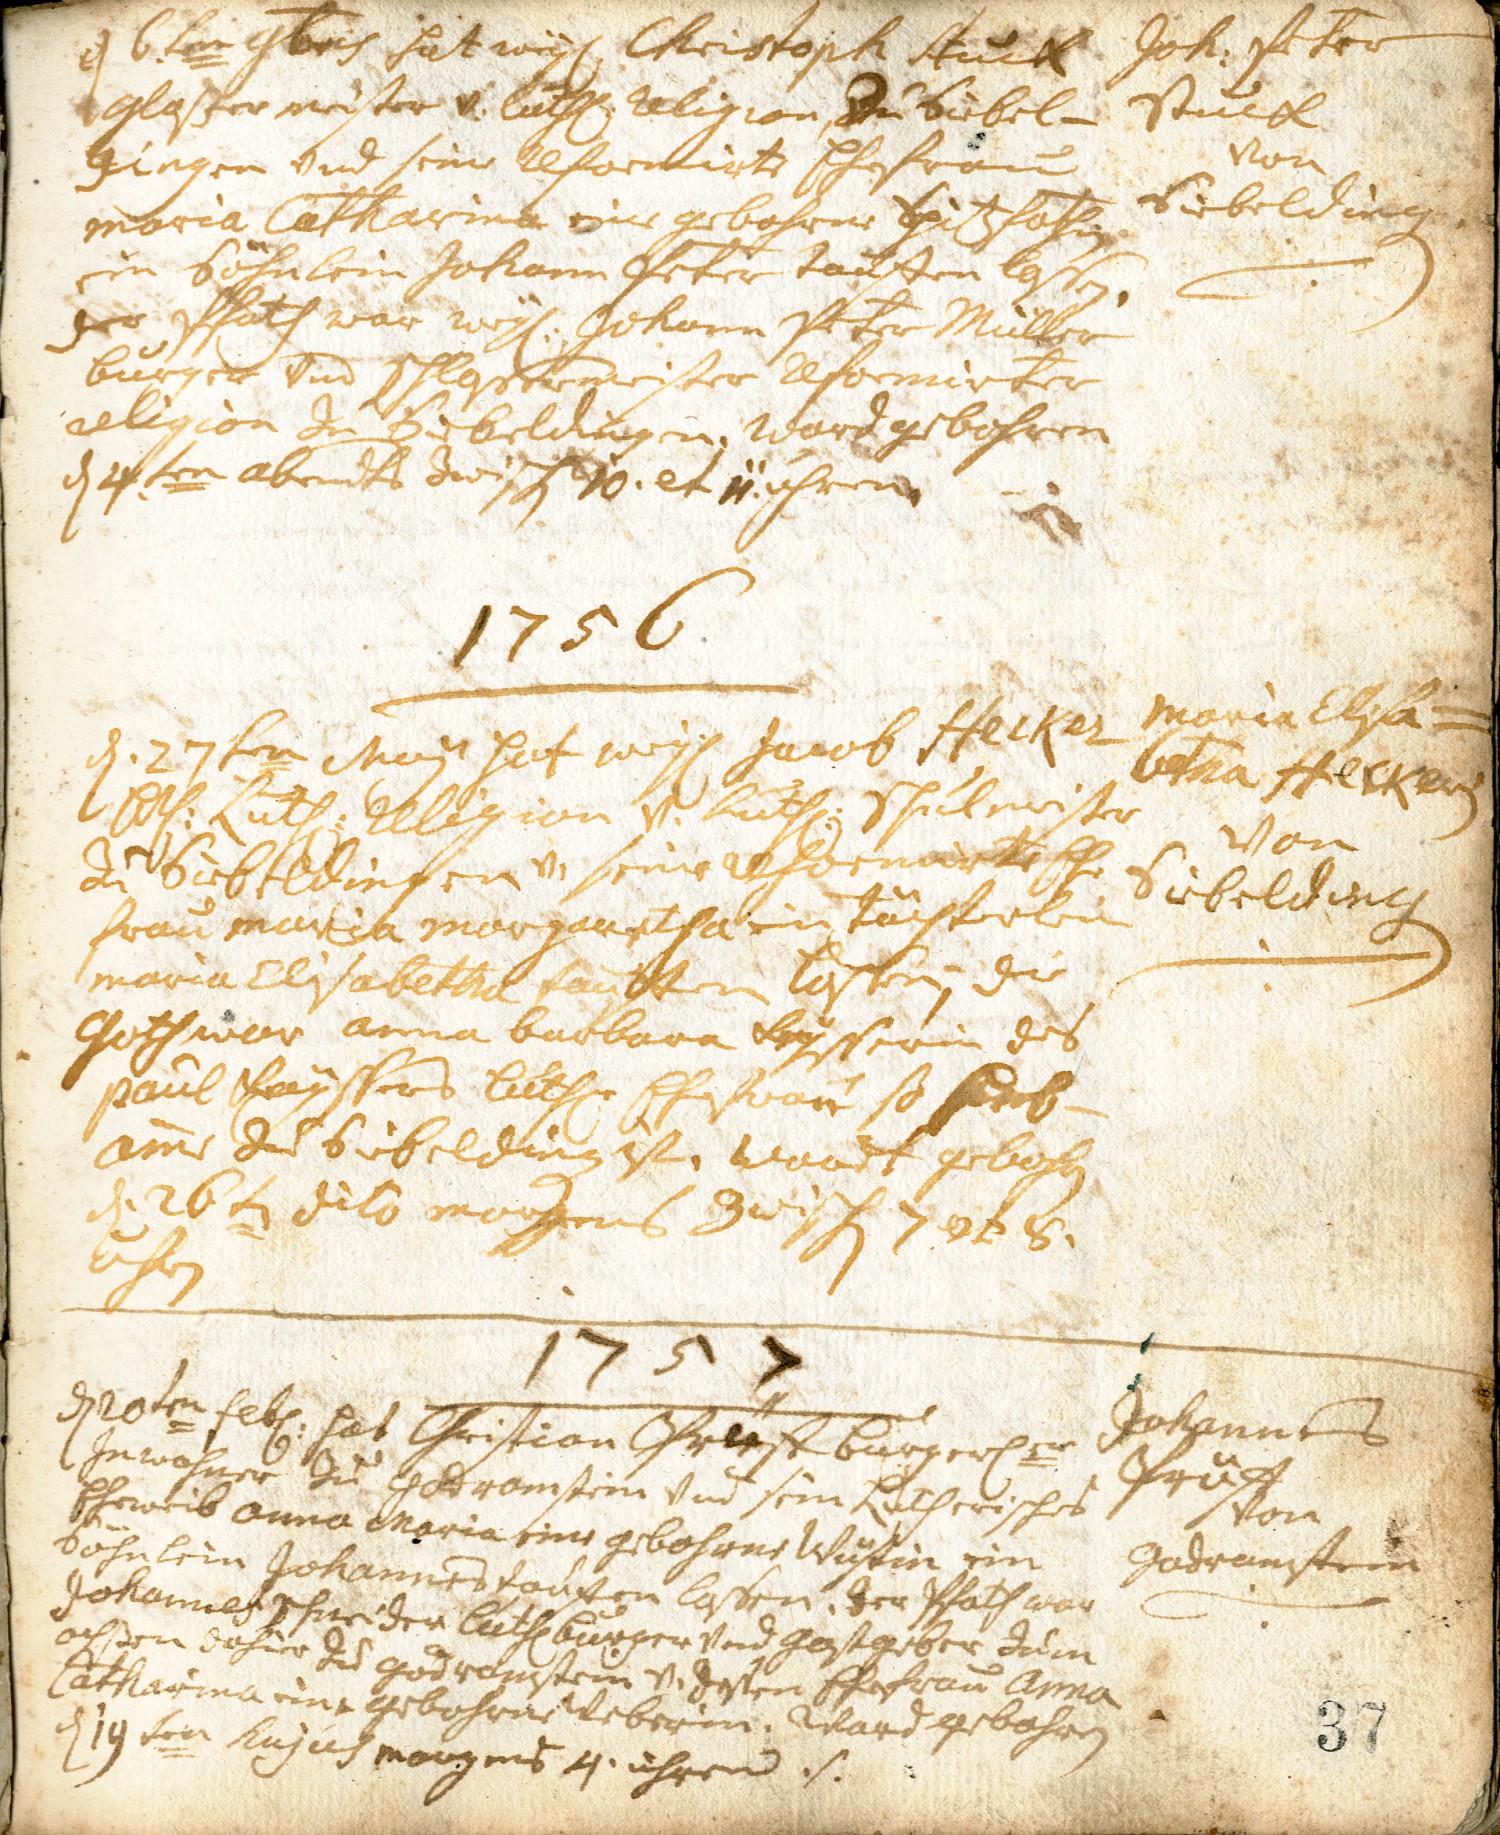 d 6.ten 9bris hat mstr Christoph Stuck
Glaßer meister v. luth. Religion, zu Siebel-
dingen und seine Reformirte Ehefrau
maria Catharina eine gebohrne
ein Söhnlein Johann Peter tauffen lassen,
der Pfath war mstr. Johann Peter Müller
burger und schlossermeister Reformirter
religion zu Siebeldingen. ward gebohren
d 4.ten abendts zwisch 10. et 11. uhren.
Joh. Peter
Stuck
von
Siebelding.
1756
d. 27ten May hat mstr Jacob Hecker
Luth: Religion v. luth: schulmeister
zu Siebeldingen v. seine Reformirte Ehe
frau maria margaretha ein Töchterlein
maria Elisabetha tauffen lassen, die
Goth war anna barbara Keysserin des
paul Keyssers luth. Ehefrau so Heeb-
amme zu Siebelding ist. wardt gebohrn
d. 26t. dito morgens Zwisch 7. et 8.
uhrn
maria Elisa=
betha Heckerin
von
Siebelding
1757
d 20ten febr: hat Christian Prüfst burger
Inwohner zu godramstein und sein Lutherisches
Eheweib anna Maria eine gebohrne Wüstin ein
Söhnlein Johannes tauffen lassen. der Pfath war
Johannes schneider luth burger und gastgeber zum
ochsen dahier zu godramstein v. dessen Ehefrau Anna
Catharina eine gebohrne Weberin. ward gebohrn
d 19ten hujus morgens 4. uhren ./.
Johannes
Prüfst
von
godramstein
37